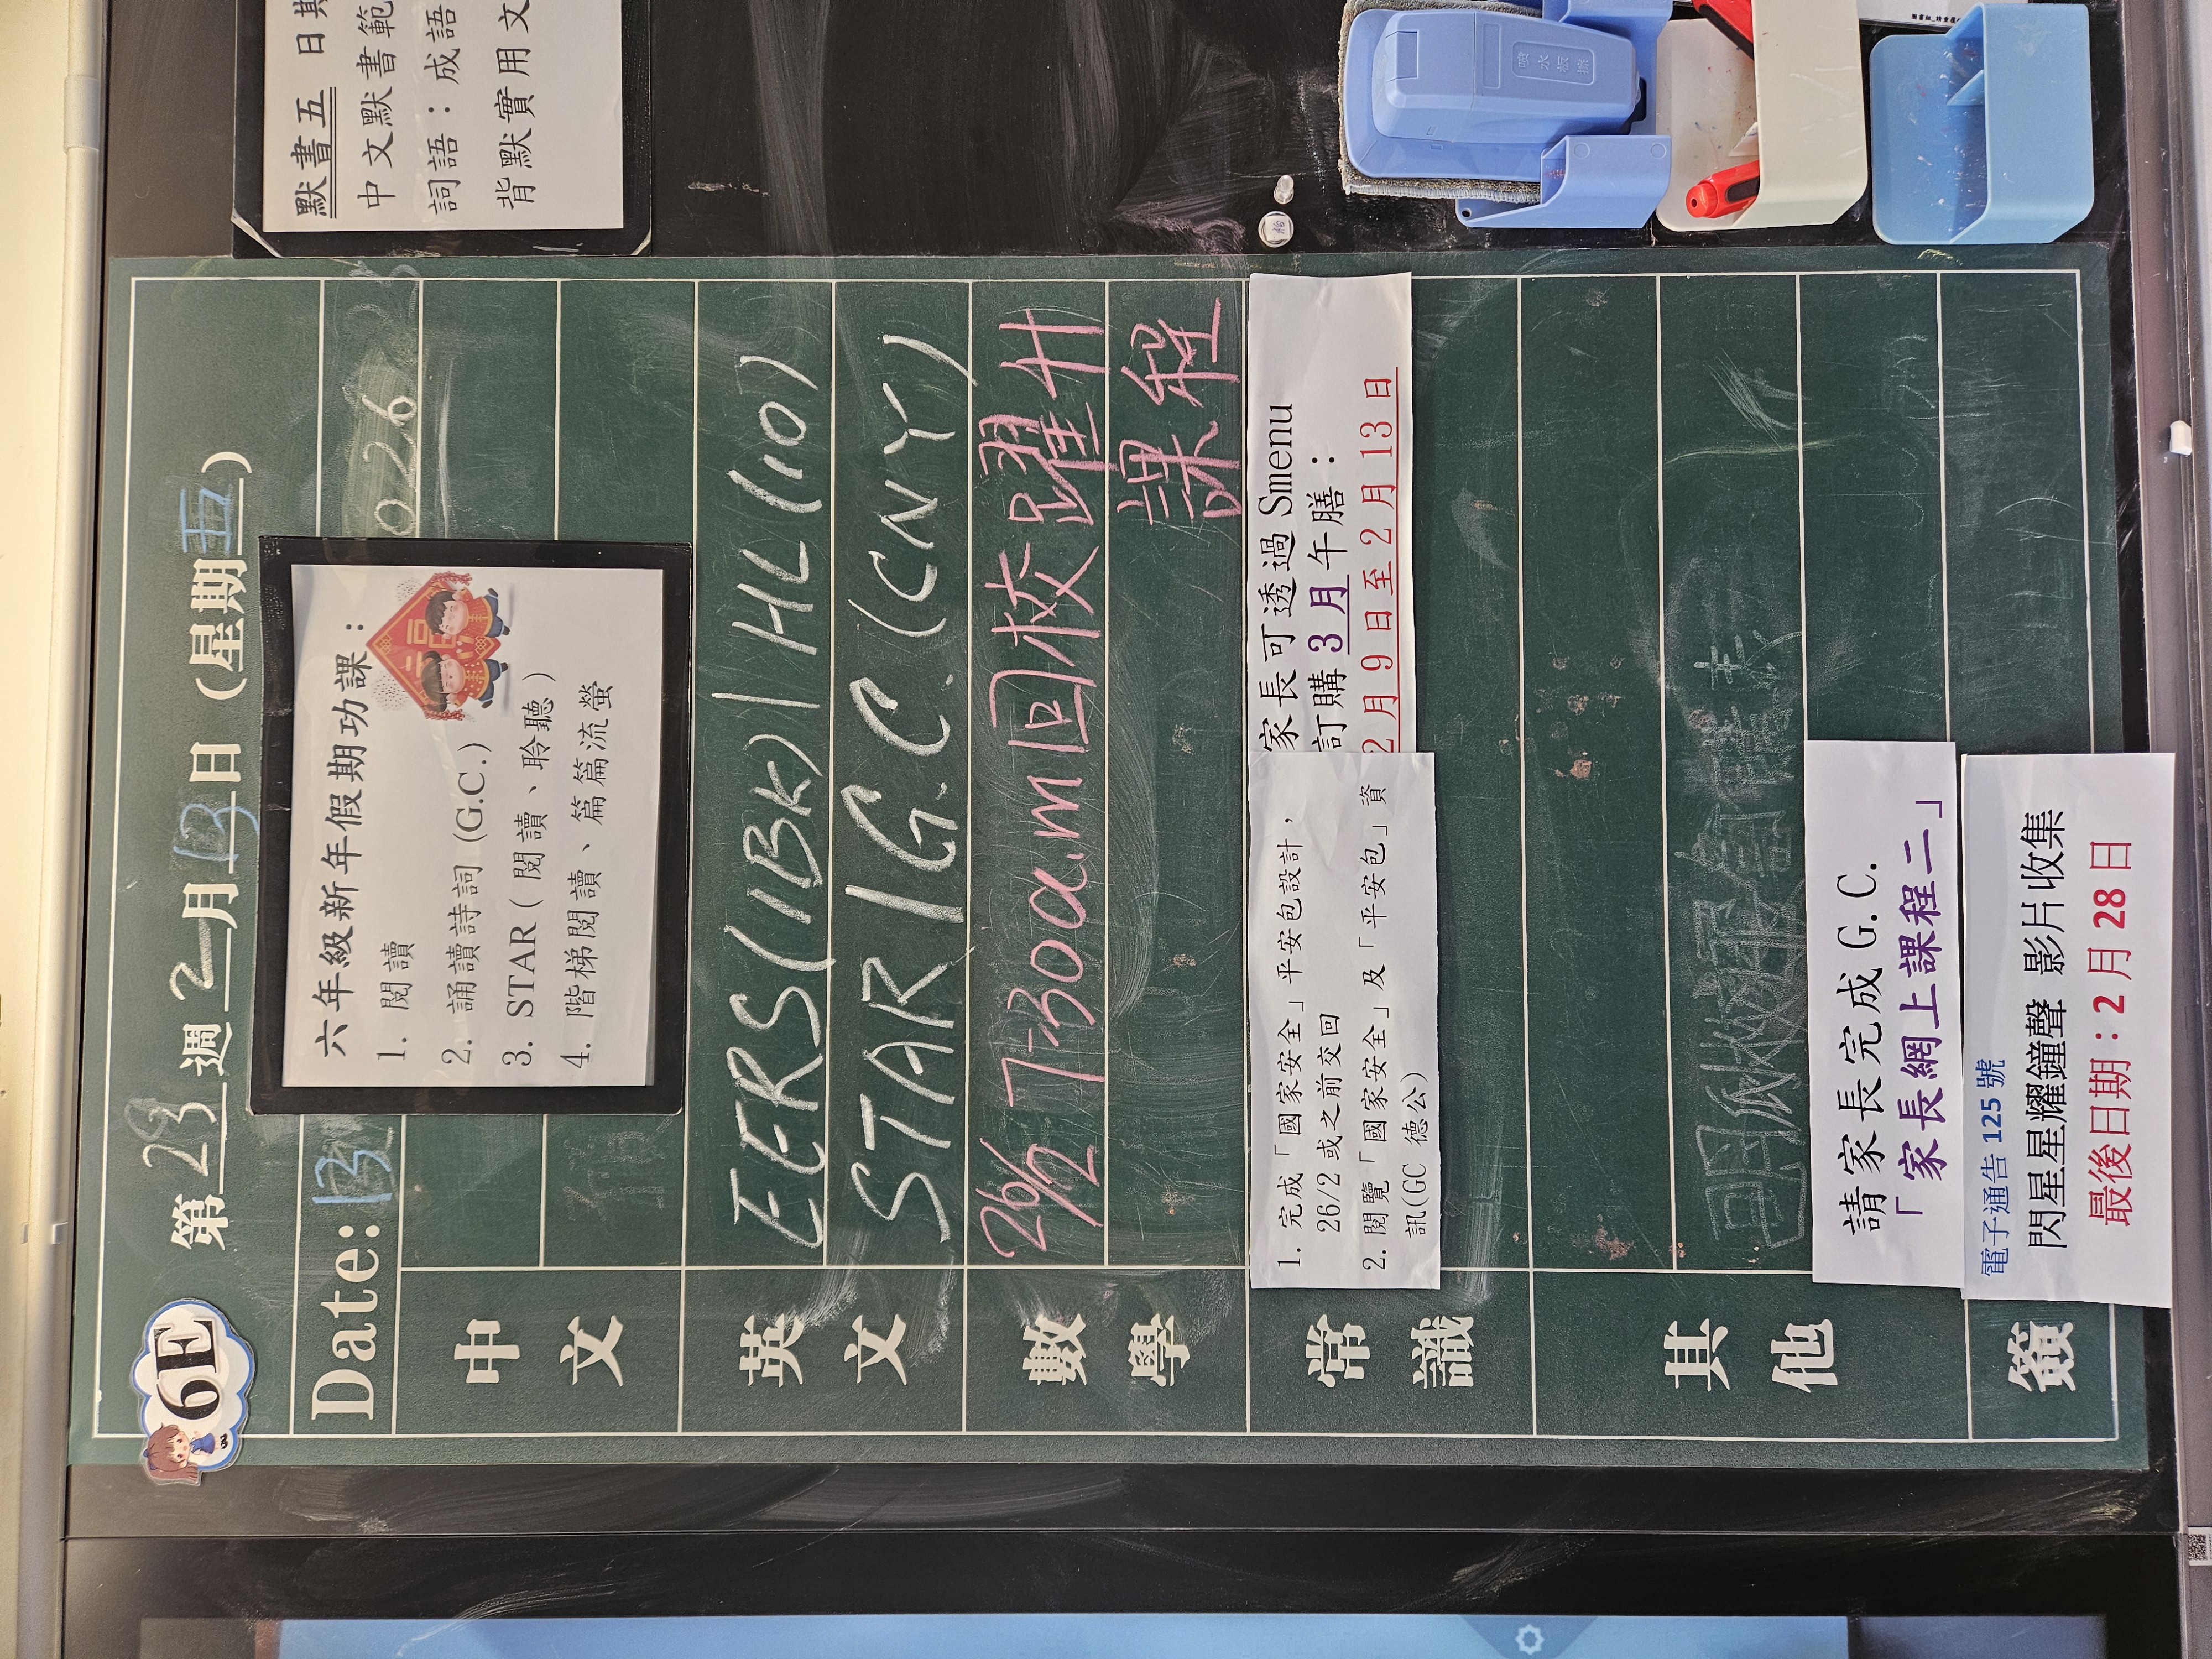 6E
第 23 週 2 月 13 日 (星期五)
Date: 13
026
六年級新年假期功課：
1. 閱讀
2. 誦讀詩詞 (G.C.)
3. STAR（閱讀、聆聽）
4. 階梯閱讀、篇篇流螢
中文
英文
EERS(1BK) / HL(10)
STAR / G.C. (CNY)
數學
26/2 7:30a.m 回校 躍升
課程
常識
1. 完成「國家安全」平安包設計，
26/2 或之前交回
2. 閱覽「國家安全」及「平安包」資
訊(GC 德公)
家長可透過 Smenu
訂購 3 月 午膳：
2 月 9 日至 2 月 13 日
其他
請家長完成 G.C.
「家長網上課程二」
電子通告 125 號
閃星星耀鐘聲 影片收集
最後日期：2 月 28 日
簽
默書五 日期
中文默書範
詞語：成語
背默實用文
噴水板擦